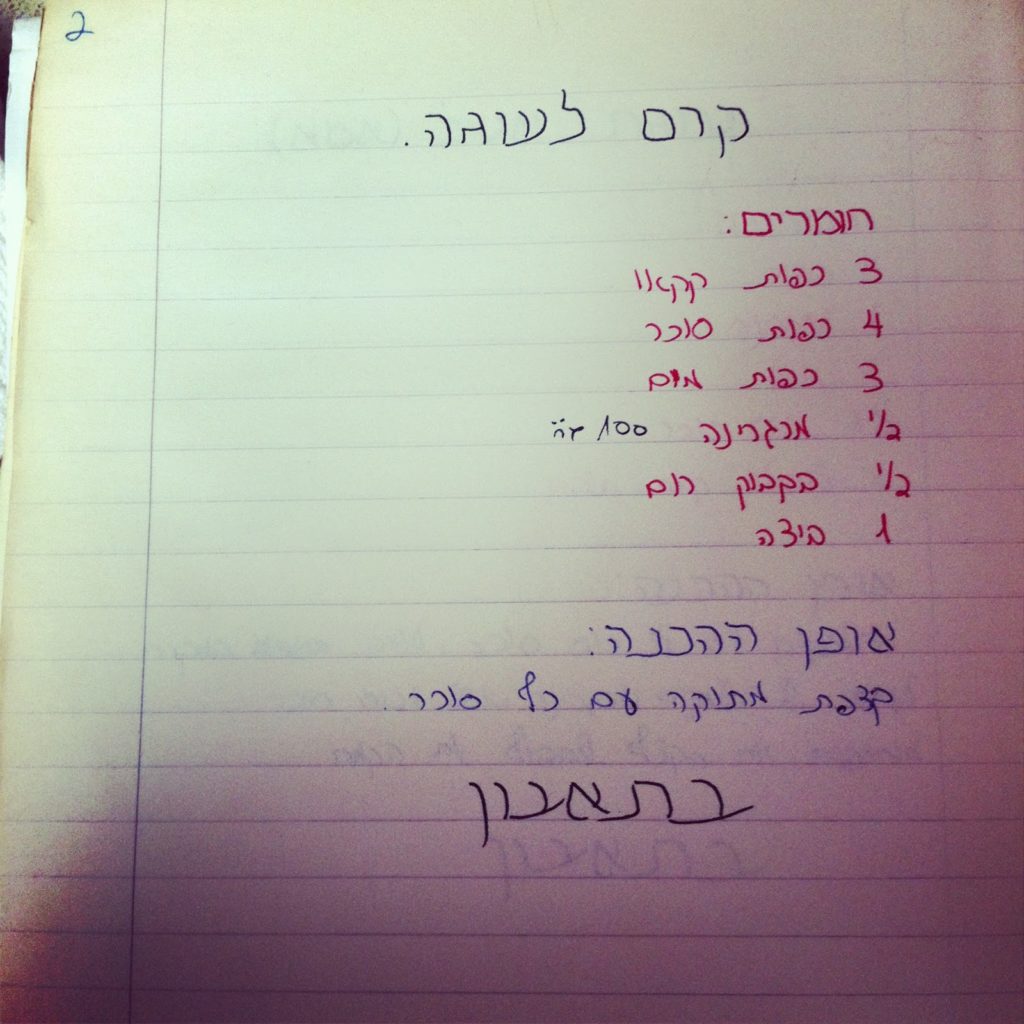 2
קרם לעוגה.
חומרים:
3 כפות קקאו
4 כפות סוכר
3 כפות מים
1/2 מרגרינה 100
1/2 בקבוק רום
1 ביצה
אופן ההכנה:
קצפת מתוקה עם כף סוכר.
בתאבון